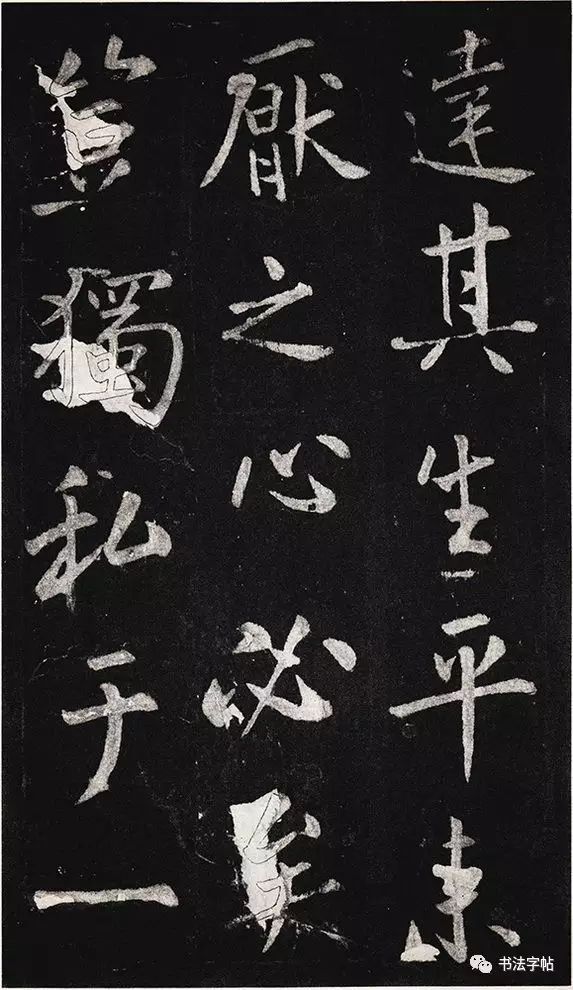 達其生平未
厭之心必矣
豈獨私于一
书法字帖